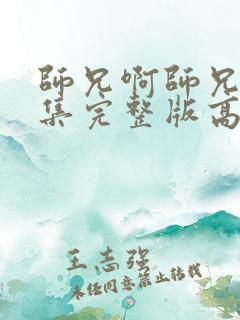 師兄啊師兄
集完整版高
王志强
未经同意禁止转载